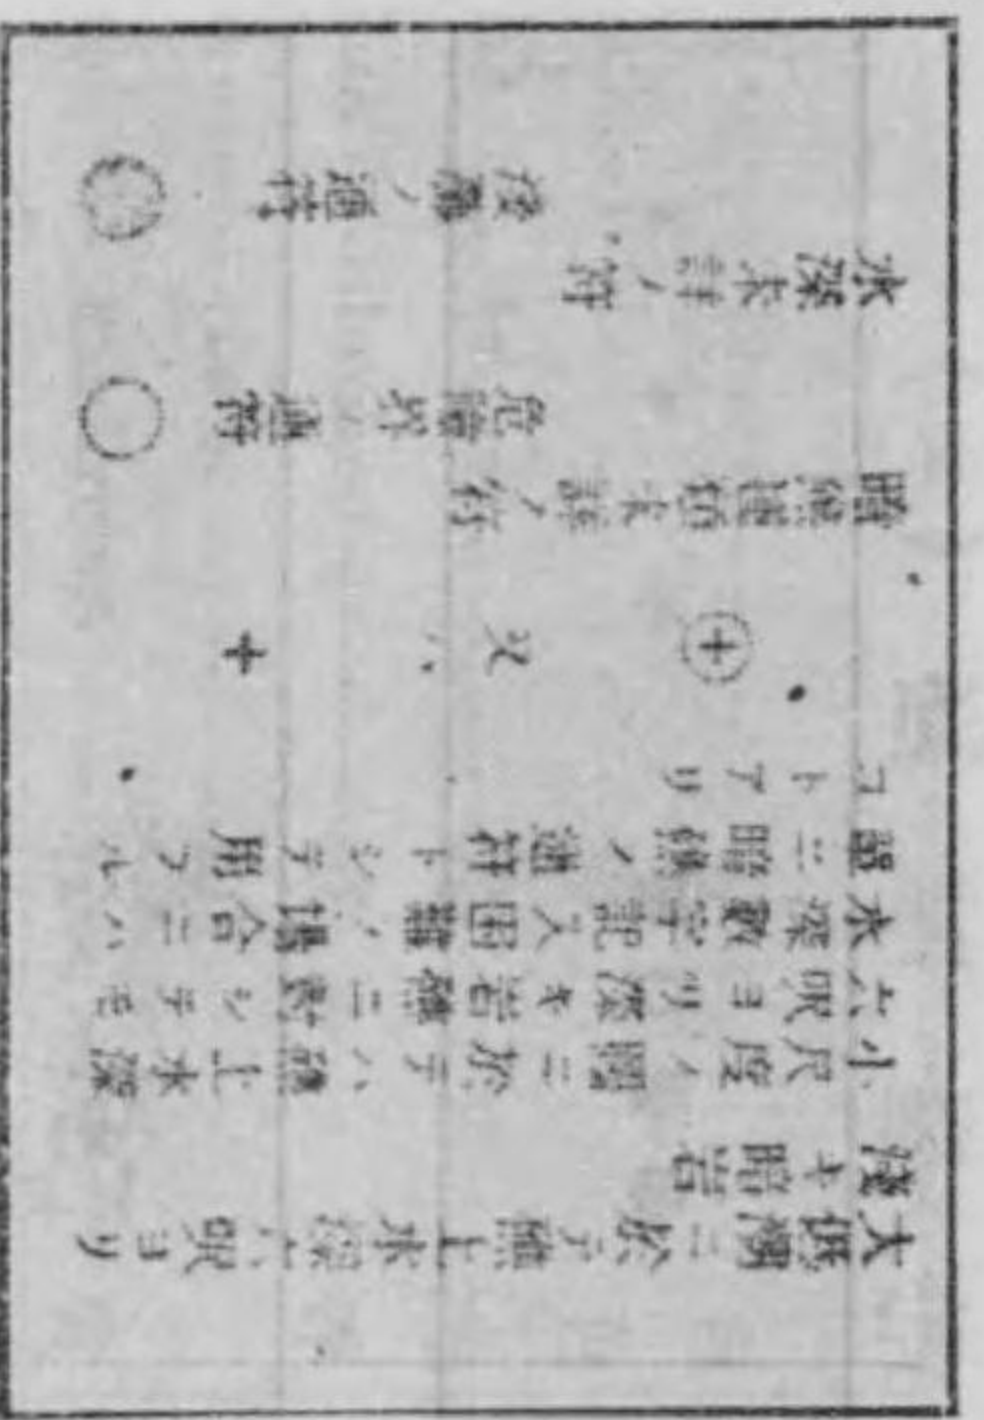 大低潮ニ於テ礁上水深六呎ヨリ
淺キ暗岩
小尺度ノ圖ニ於テハ礁上水深
六呎ヨリ深キ岩礁ニ對シテモ
水深數字記入困難ノ場合ニハ
單ニ暗礁ノ通符トシテ用フル
コトアリ
又ハ +
暗礁 未詳ノ符
危險界ノ通符
水深未計ノ符
ノ通符